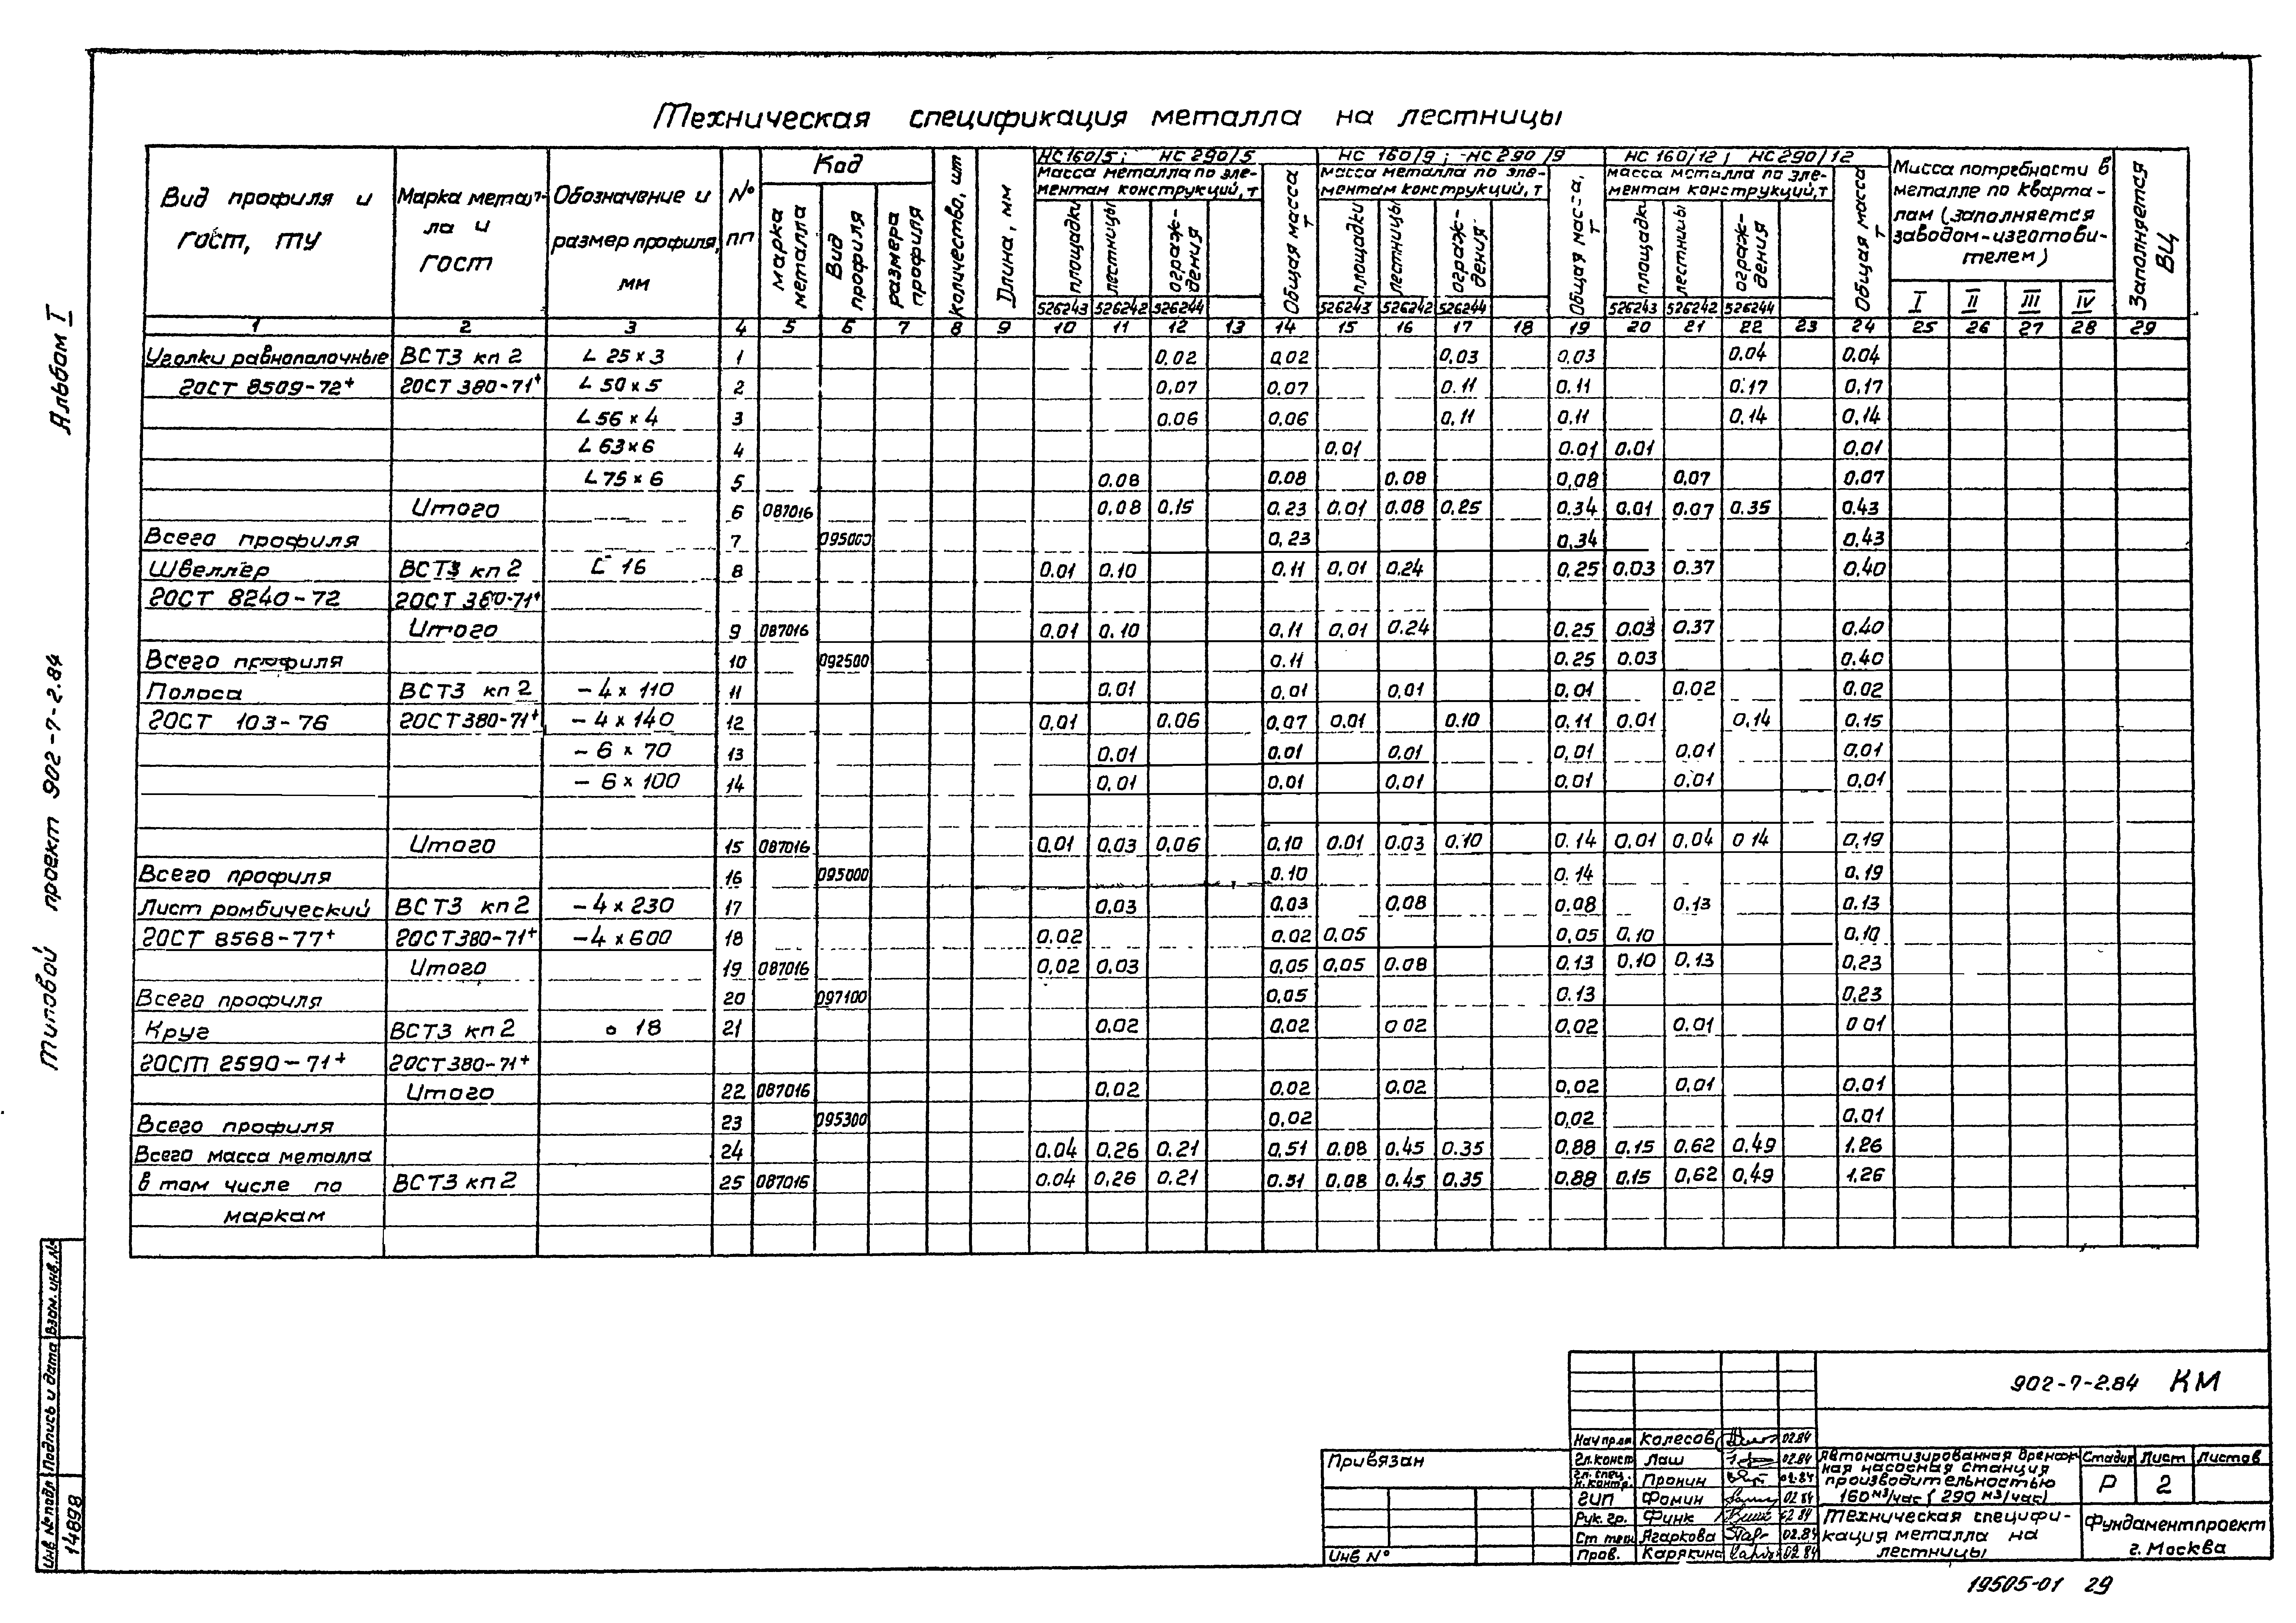 Техническая спецификация металла на лестницы
Вид профиля и гост, ту
Марка металла и гост
Обозначение и размер профиля, мм
№ пп
Код
марка металла
Вид профиля
размера профиля
количество, шт
Длина, мм
НС160/5; НС 290/5
Масса металла по элементам конструкций, т
площадки
лестницы
ограждения
526243 526242 526244
Общая масса т
НС 160/9; НС290/9
масса металла по элементам конструкций, т
площадки
лестницы
ограждения
526243 526242 526244
Общая масса, т
НС 160/12; НС290/12
масса металла по элементам конструкций, т
площадки
лестницы
ограждения
526243 526242 526244
Общая масса т
Масса потребности в металле по кварталам (заполняется заводом-изготовителем)
I II III IV
Заполняется ВЦ
1 2 3 4 5 6 7 8 9 10 11 12 13 14 15 16 17 18 19 20 21 22 23 24 25 26 27 28 29
Уголки равнополочные ВСТ3 кп 2 L 25 x 3 1 0.02 0,02 0,03 0,03 0,04 0,04
ГОСТ 8509-72+ ГОСТ 380-71+ L 50 x 5 2 0,07 0,07 0.11 0.11 0.17 0,17
L 56 x 4 3 0.06 0,06 0,11 0,11 0,14 0,14
L 63x6 4 0,01 0.01 0.01 0,01
L 75 x 6 5 0.08 0.08 0.08 0,08 0,07 0,07
Итого 6 087016 0,08 0,15 0.23 0,01 0,08 0,25 0.34 0.01 0,07 0.35 0.43
Всего профиля 7 095000 0,23 0,34 0,43
Швеллер ВСТ3 кп 2 [ 16 8 0.01 0.10 0.11 0,01 0,24 0,25 0.03 0.37 0,40
ГОСТ 8240-72 ГОСТ 380-71+
Итого 9 087016 0,01 0.10 0,11 0,01 0.24 0.25 0.03 0.37 0,40
Всего профиля 10 092500 0.11 0.25 0.03 0.40
Полоса ВСТ3 кп 2 - 4 x 110 11 0,01 0,01 0,01 0,01 0.02 0.02
ГОСТ 103-76 ГОСТ 380-71+ - 4 x 140 12 0,01 0,06 0,07 0,01 0.10 0,11 0,01 0,14 0.15
- 6 x 70 13 0.01 0.01 0,01 0,01 0,01 0,01
- 6 x 100 14 0,01 0,01 0,01 0,01 0.01 0,01
Итого 15 087016 0,01 0,03 0,06 0.10 0.01 0.03 0.10 0.14 0,01 0,04 0 14 0,19
Всего профиля 16 095000 0.10 0.14 0.19
Лист ромбический ВСТ3 кп 2 - 4 x 230 17 0,03 0.03 0,08 0.08 0,13 0.13
ГОСТ 8568-77+ ГОСТ 380-71+ - 4 x 600 18 0,02 0.02 0,05 0,05 0,10 0,10
Итого 19 087016 0,02 0.03 0,05 0,05 0.08 0.13 0,10 0,13 0,23
Всего профиля 20 097100 0,05 0.13 0,23
Круг ВСТ3 кп 2 о 18 21 0,02 0,02 0 02 0,02 0,01 0 01
ГОСТ 2590-71+ ГОСТ 380-71+
Итого 22 087016 0,02 0,02 0,02 0,02 0,01 0.01
Всего профиля 23 095300 0,02 0,02 0,01
Всего масса металла 24 0.04 0,26 0,21 0,51 0,08 0.45 0.35 0,88 0,15 0,62 0,49 1,26
в том числе по ВСТ3 кп 2 25 087016 0.04 0,26 0,21 0.51 0,08 0.45 0,35 0.88 0,15 0,62 0,49 1,26
маркам
Альбом I
Типовой проект 902-7-2.84
Инв № подл
Подпись и дата
Взам. инв. №
14898
Привязан
Инв №
902-7-2.84 КМ
Нач пр.отд Колесов 02.84
Гл.конст Лаш 02.84
Гл. спец. н.контр. Пронин 02.84
ГИП Фомин 02 84
Рук. гр. Финк 02 84
Ст техн Агаркова 02.84
Пров. Карякина 02 84
Автоматизированная дренажная насосная станция производительностью 160 м3/час (290 м3/час)
Стадия Лист Листов
Р 2
Техническая спецификация металла на лестницы
Фундаментпроект
г. Москва
19505-01 29